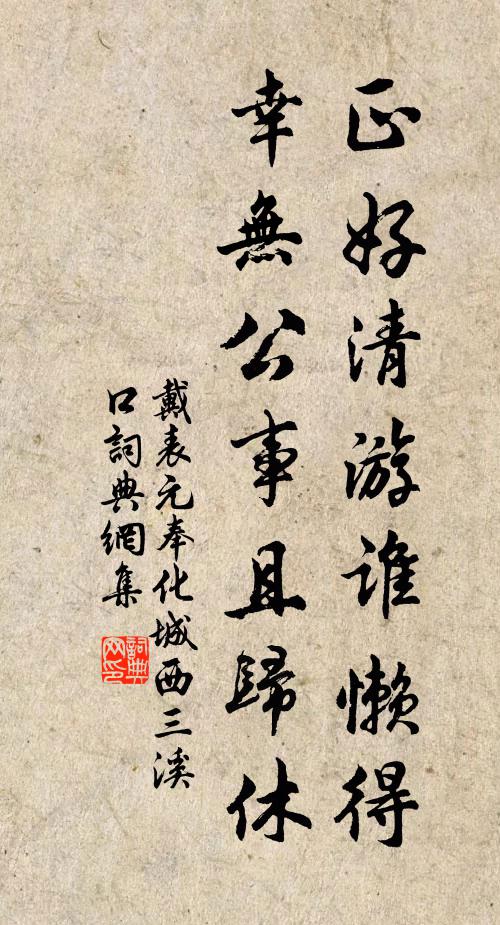 正好清游谁懒得
幸無公事且歸休
戴表元奉化城西三溪
口詞典網集
詞典
网印